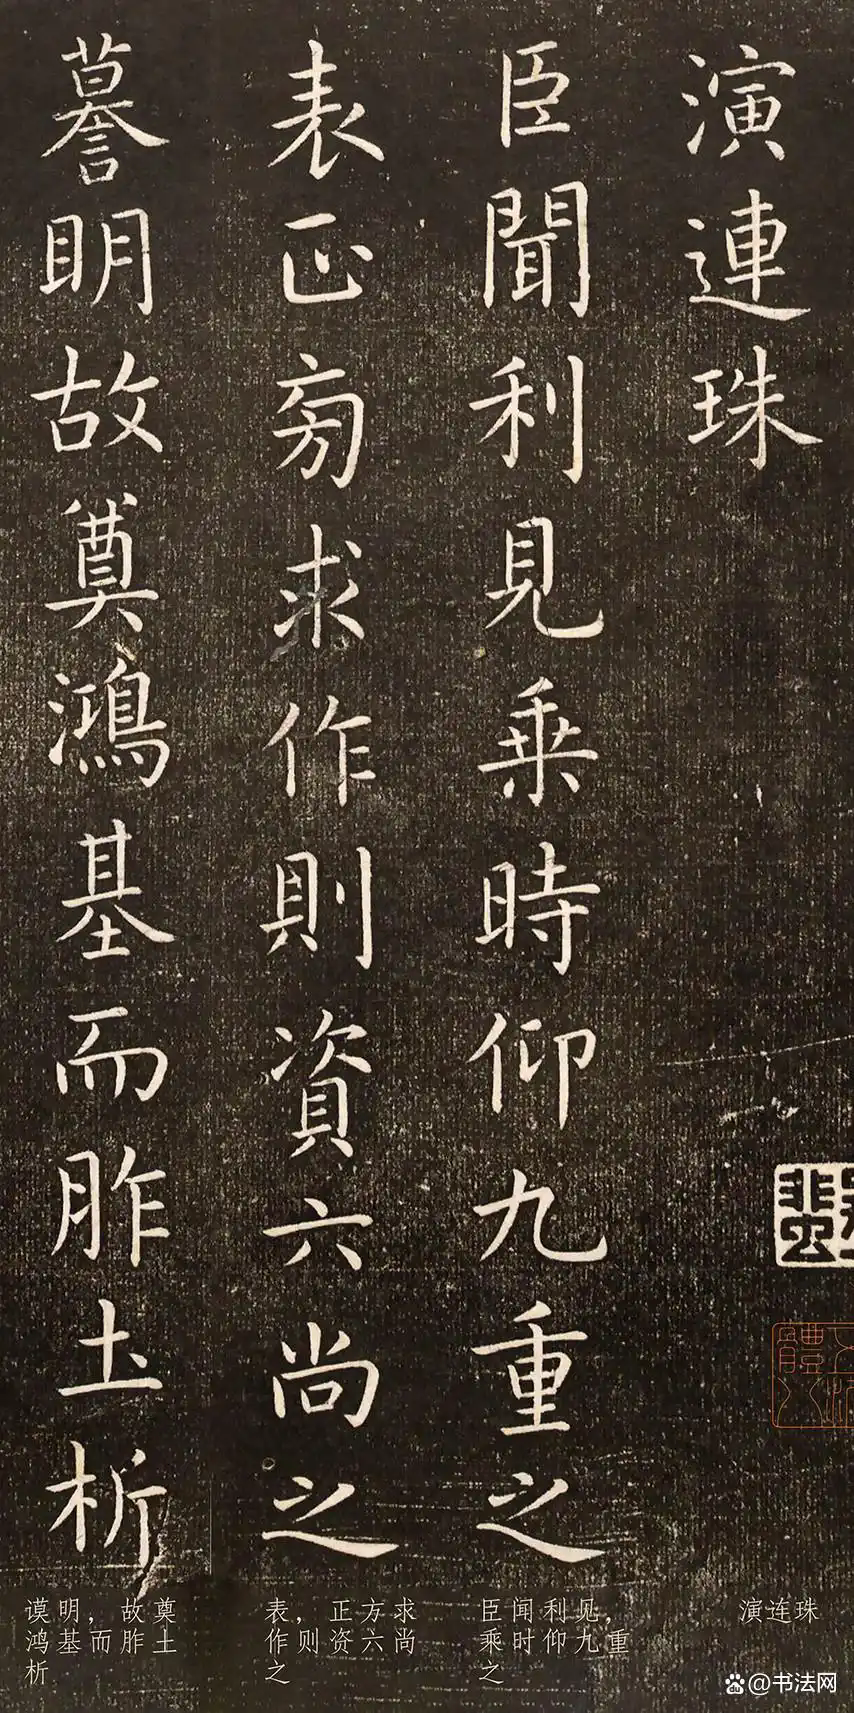 演連珠
臣聞利見乗時仰九重之
表正方求作則資六尚之
謩明故奠鴻基而胙土析
演连珠
臣闻利见，
乘时仰九重
之
表，正方求
作则资六尚
之
谟明，故奠
鸿基而胙土
析
@书法网